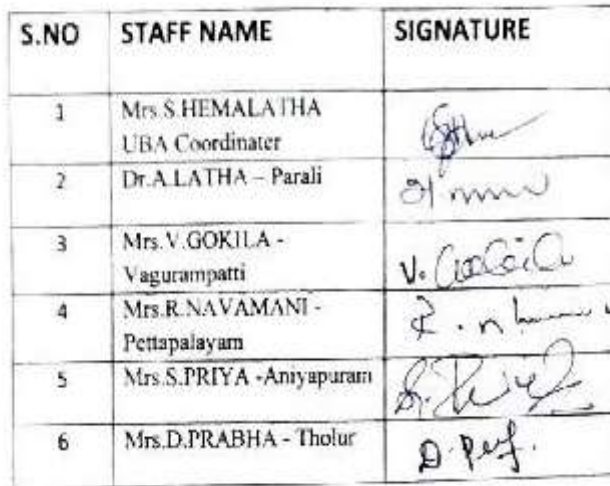 S.NO STAFF NAME SIGNATURE
1 Mrs.S.HEMALATHA
UBA Coordinater
2 Dr.A.LATHA – Parali
3 Mrs.V.GOKILA -
Vagurampatti V.
4 Mrs.R.NAVAMANI -
Pettapalayam R.
5 Mrs.S.PRIYA -Aniyapuram S.
6 Mrs.D.PRABHA - Tholur D.